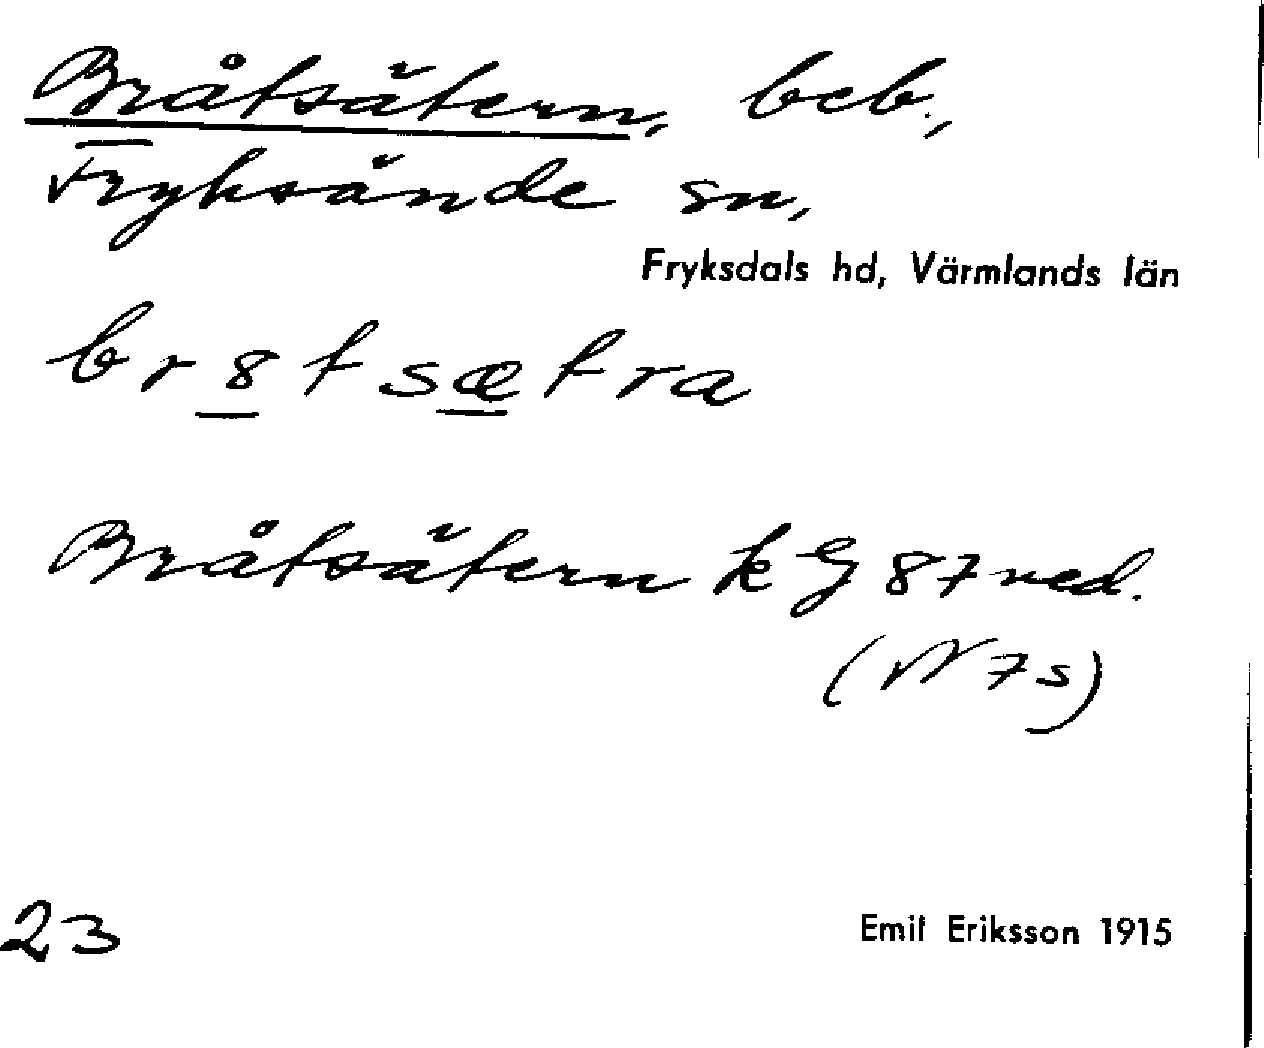 Bråtsätern, beb.,
Fryksände sn,
Fryksdals hd, Värmlands län
br8tsætra
Bråtsätern k G 87 ned.
(W 7 s)
23
Emil Eriksson 1915